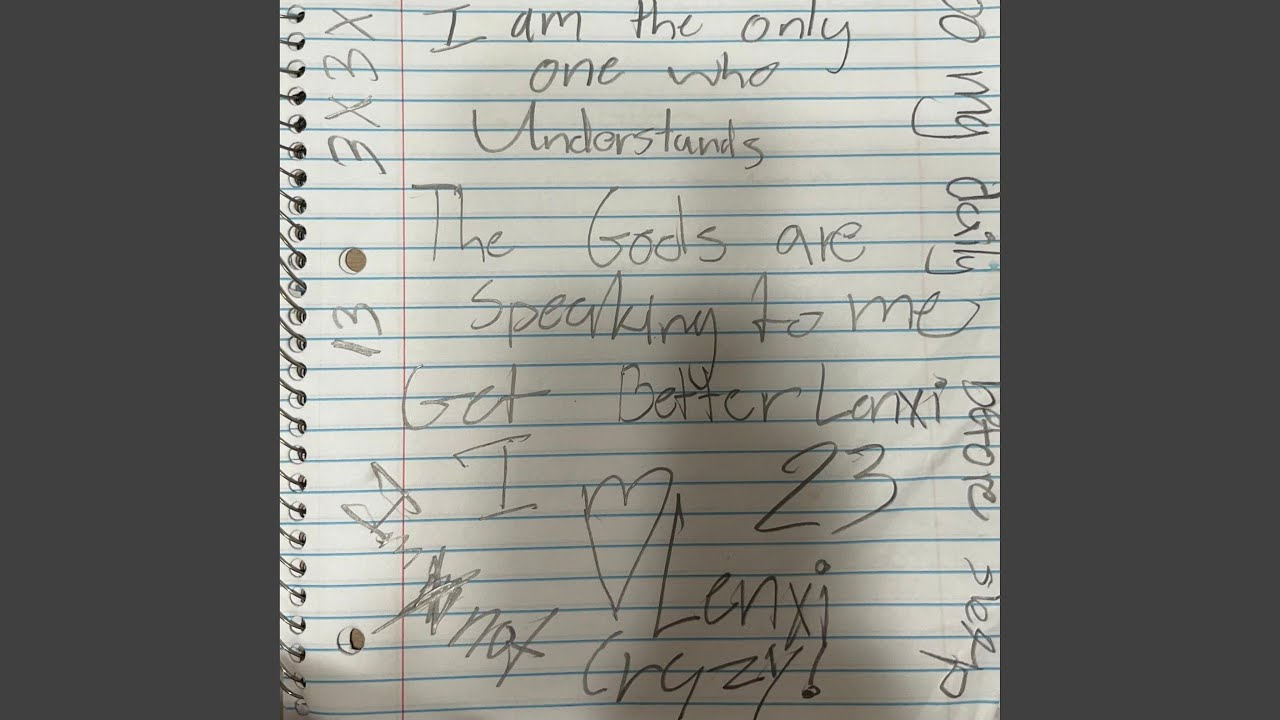 I am the only
one who
Understands
The Gods are
Speaking to me
Get Better Lenxi
I 23
Lenxi
not
Cryzy!
3 X 3 X
13
my daily before sleep